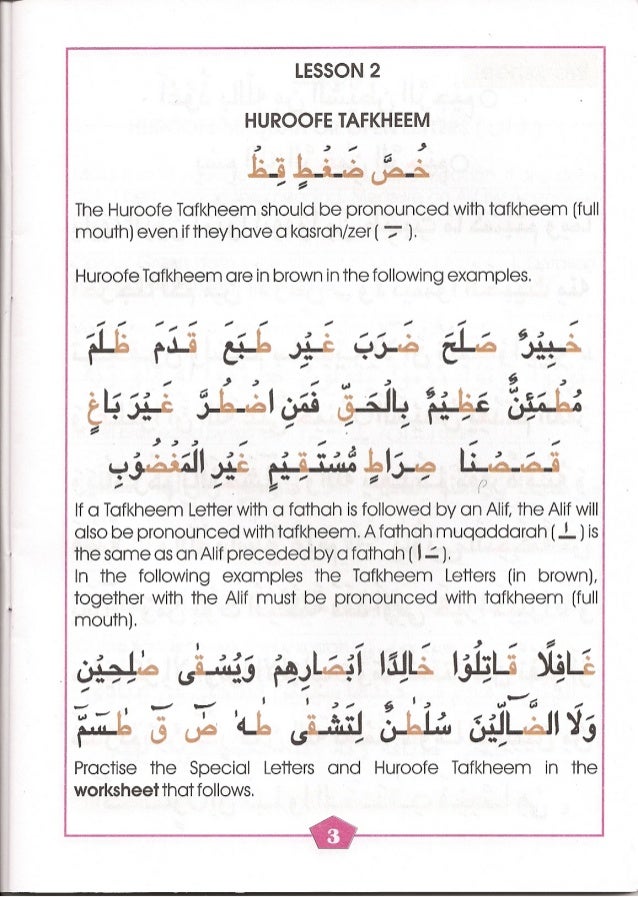 LESSON 2
HUROOFE TAFKHEEM
خُصَّ ضَغْطٍ قِظْ
The Huroofe Tafkheem should be pronounced with tafkheem (full
mouth) even if they have a kasrah/zer ( ـِ ).
Huroofe Tafkheem are in brown in the following examples.
خَبِيْرٌ صَلَحَ ضَرَبَ غَيْرِ طَبَعَ قَدَمَ ظَلَمَ
مُطْمَئِنٌّ عَظِيْمٌ بِالْحَقِّ فَمَنِ اضْطُرَّ غَيْرَ بَاغٍ
قَصَصْنَا صِرَاطٍ مُّسْتَقِيْمٍ غَيْرِ الْمَغْضُوْبِ
If a Tafkheem Letter with a fathah is followed by an Alif, the Alif will
also be pronounced with tafkheem. A fathah muqaddarah ( ـٰ ) is
the same as an Alif preceded by a fathah ( ـَ ا ).
In the following examples the Tafkheem Letters (in brown),
together with the Alif must be pronounced with tafkheem (full
mouth).
غَافِلًا قَاتِلُوْا خَالِدًا اَبْصَارِهِمْ وَيُسْقٰى صٰلِحِيْنَ
وَلَا الضَّآلِّيْنَ سُلْطٰنٌ لِتَشْقٰى طٰهٰ صٓ قٓ طٰسٓمٓ
Practise the Special Letters and Huroofe Tafkheem in the
worksheet that follows.
3